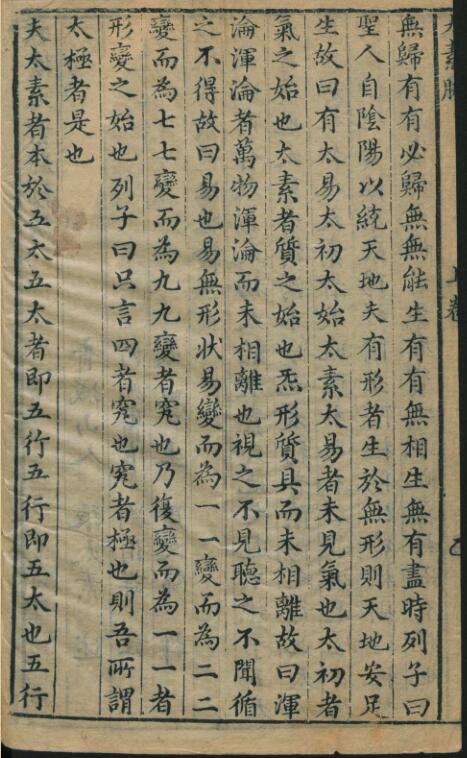 太素脉
上卷
無歸有有必歸無無能生有有無相生無有盡時列子曰
聖人自陰陽以統天地夫有形者生於無形則天地安足
生故曰有太易太初太始太素太易者未見氣也太初者
氣之始也太素者質之始也炁形質具而未相離故曰渾
淪渾淪者萬物渾淪而未相離也視之不見聽之不聞循
之不得故曰易也易無形狀易變而為一一變而為二二
變而為七七變而為九九變者究也乃復變而為一一者
形變之始也列子曰只言四者究也究者極也則吾所謂
太極者是也
夫太素者本於五太五太者即五行五行即五太也五行